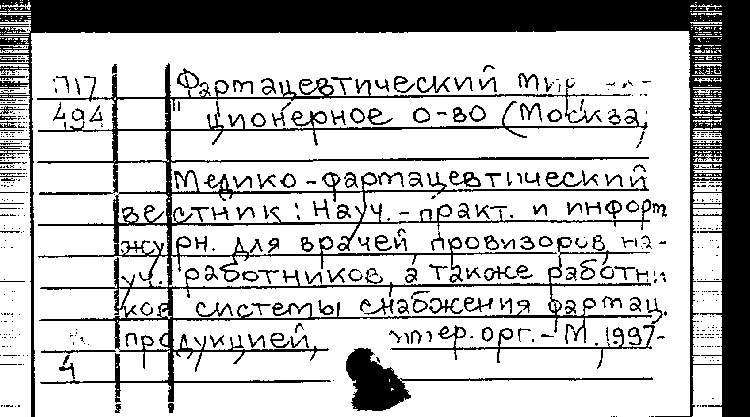 П17 Фармацевтический мир
494 ционерное о-во (Москва,
Медико-фармацевтический
вестник: Науч.-практ. и информ
журн. для врачей, провизоров, на-
уч. работников, а также работни
ков системы снабжения фармац.
продукцией, орг. - М. 1997-
4